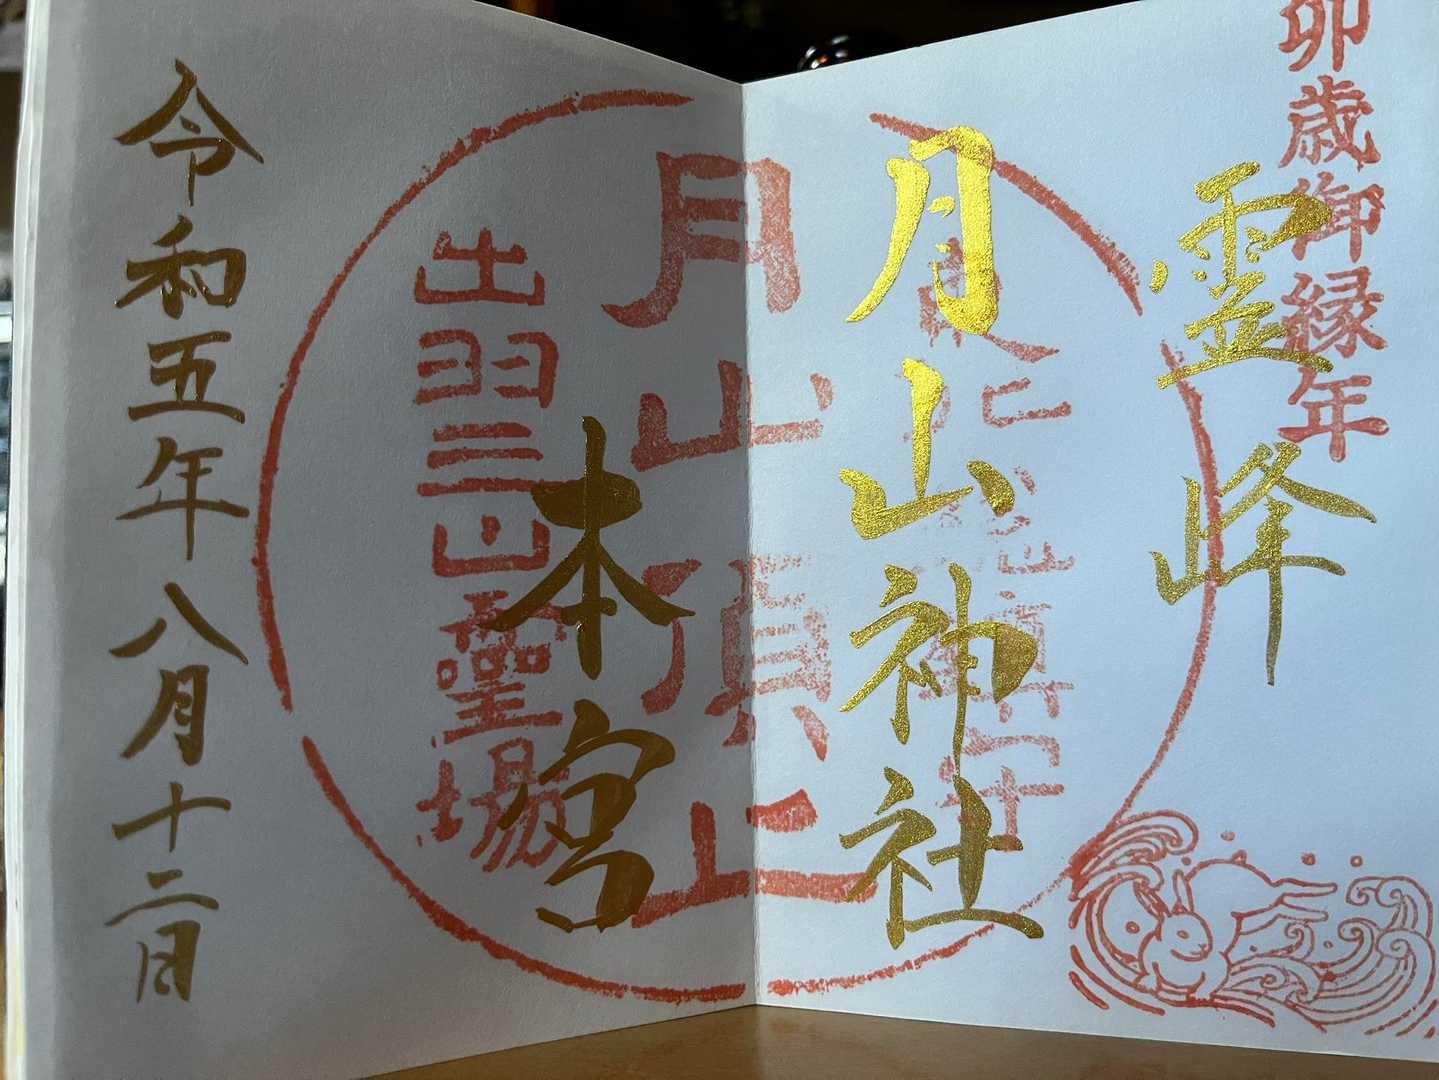 卯歳御縁年
霊峰
月山神社
月山頂上
本宮
出羽三山靈場
令和五年八月十二日